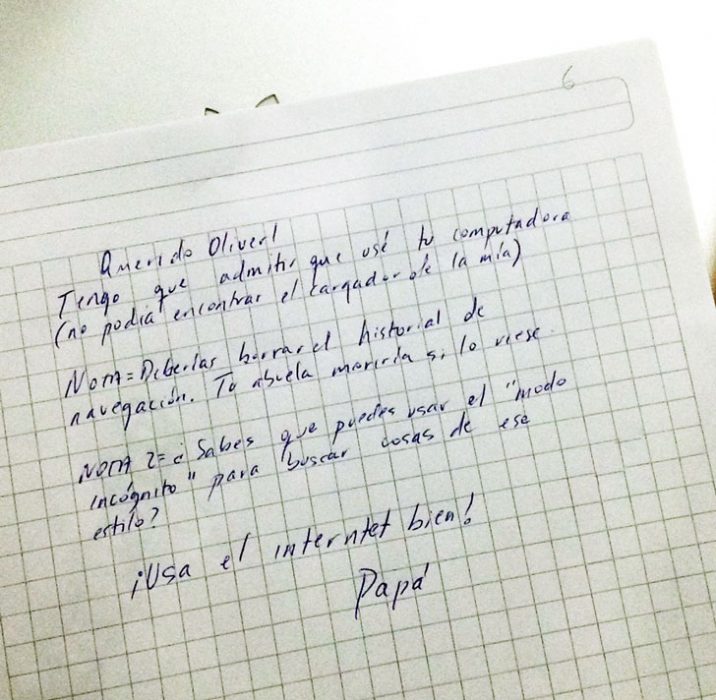 6
Querido Oliver!
Tengo que admitir que usé tu computadora
(no podía encontrar el cargador de la mía)
NOTA= Deberías borrar el historial de
navegación. Tu abuela moriría si lo viese.
NOTA 2= ¿Sabes que puedes usar el "modo
incógnito" para buscar cosas de ese
estilo?
¡Usa el interntet bien!
Papá